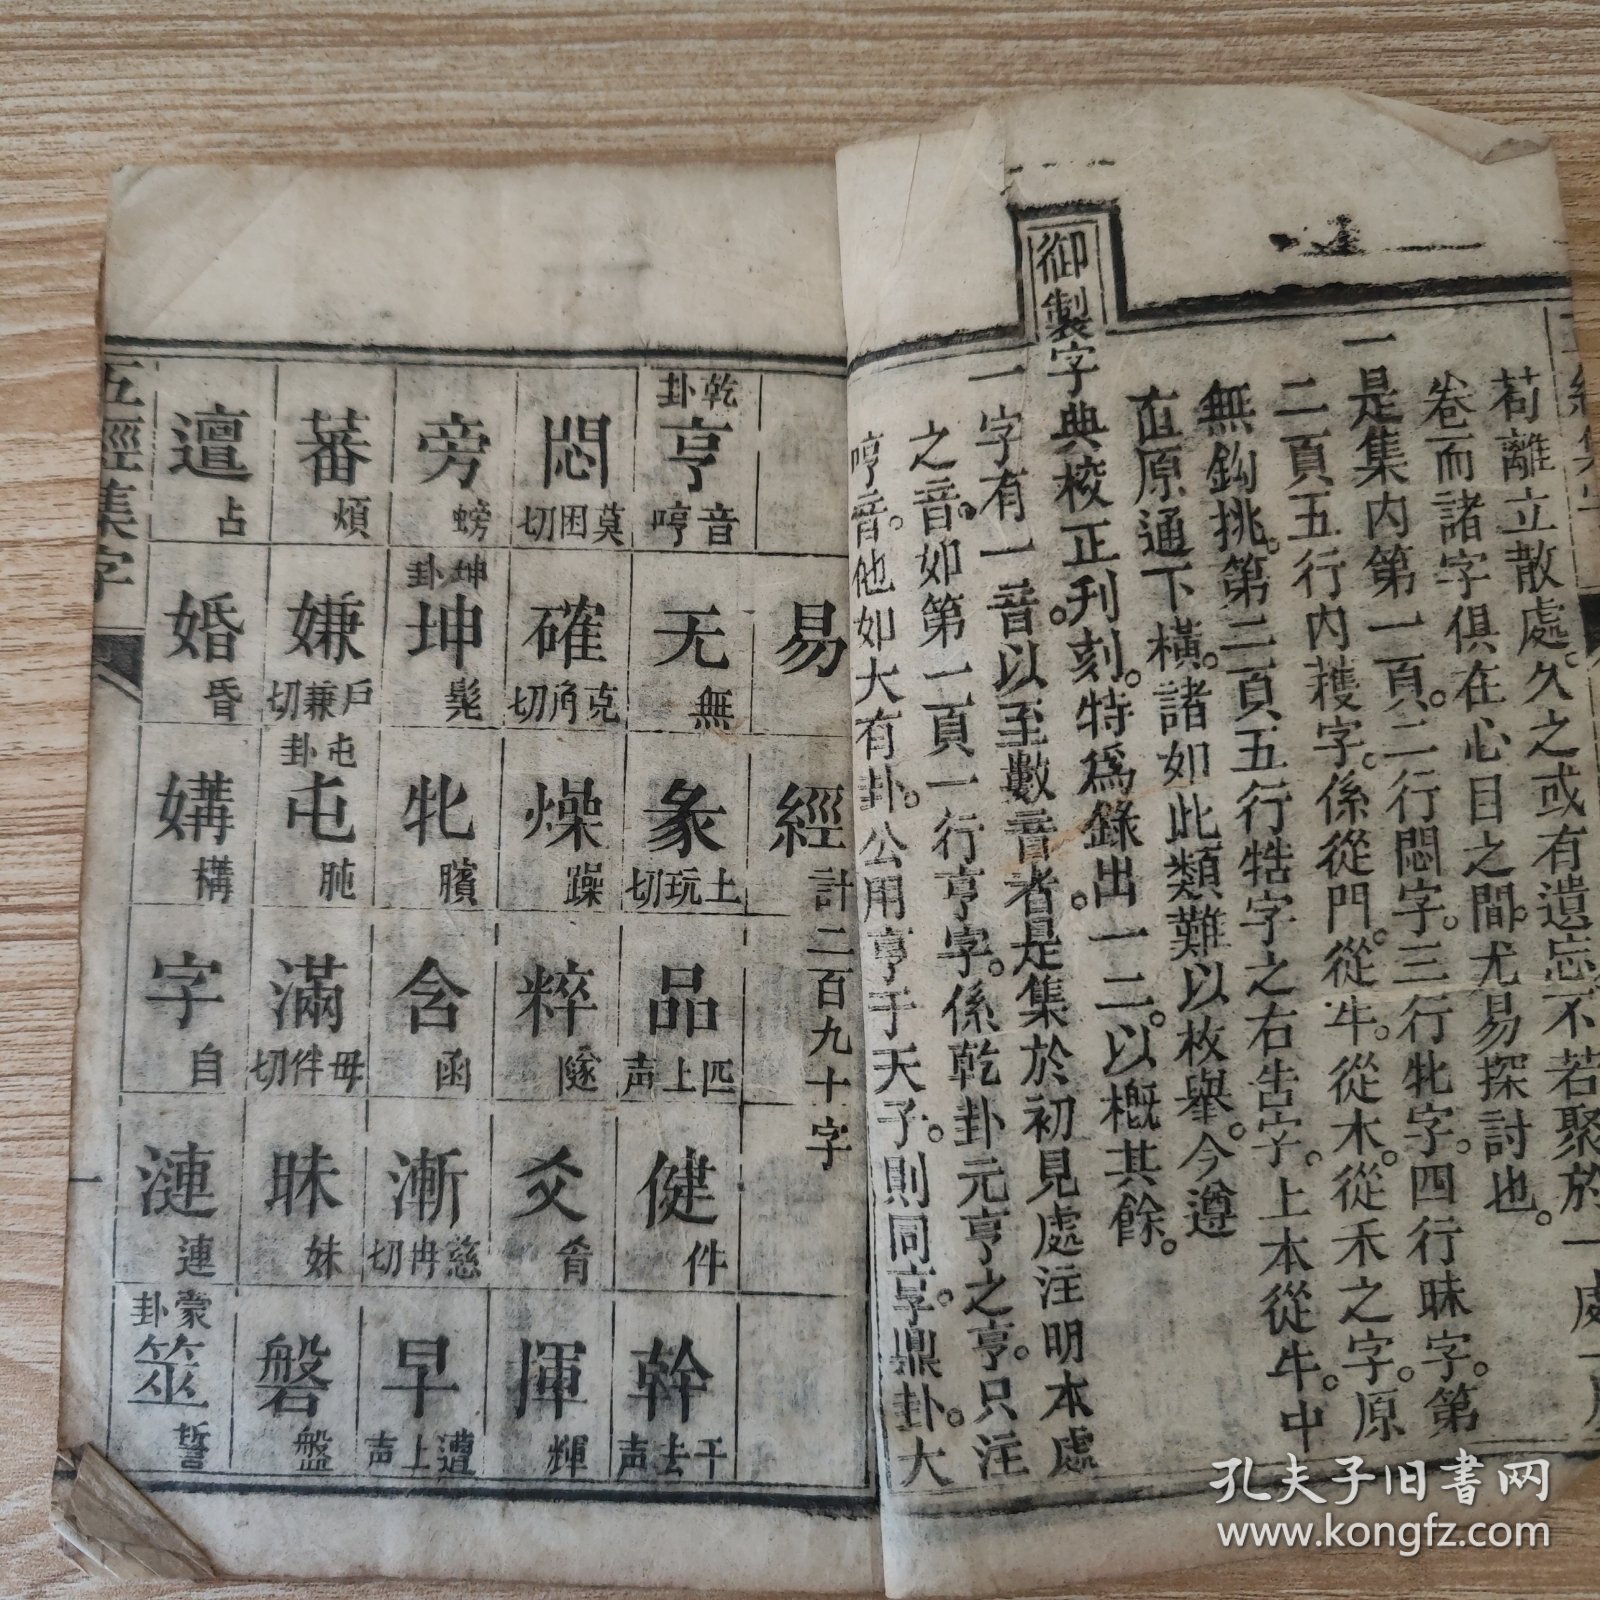 苟離立散處。久之或有遺忘。不若聚於一處一
卷而諸字俱在心目之間。尤易探討也。
一是集内第一頁。二行悶字。三行牝字。四行昧字。第
二頁五行内䅿字。係從門。從牛。從木。從禾之字。原
無鈎挑。第二頁五行牿字之右吿字。上本從牛。中
直原通下橫。諸如此類難以枚舉。今遵
御製字典校正刋刻。特為錄出一二。以概其餘。
一字有一音以至數音者。是集於初見處注明本處
之音。如第一頁一行亨字。係乾卦元亨之亨。只注
哼音。他如大有卦。公用亨于天子。則同享。鼎卦。大
易經計二百九十字
乾卦 亨 音哼
无 無
彖 土玩切
品 匹上声
健 件
幹 干去声
悶 莫困切
確 克角切
燥 躁
粹 隧
爻 肴
揮 輝
旁 螃
坤卦 坤 髡
牝 臏
含 函
漸 慈冉切
早 遭上声
蕃 煩
嫌 戶兼切
屯卦 屯 肫
滿 毋伴切
昧 妹
磐 盤
邅 占
婚 昏
媾 構
字 自
漣 連
蒙卦 筮 誓
五經集字
一
孔夫子旧书网
www.kongfz.com